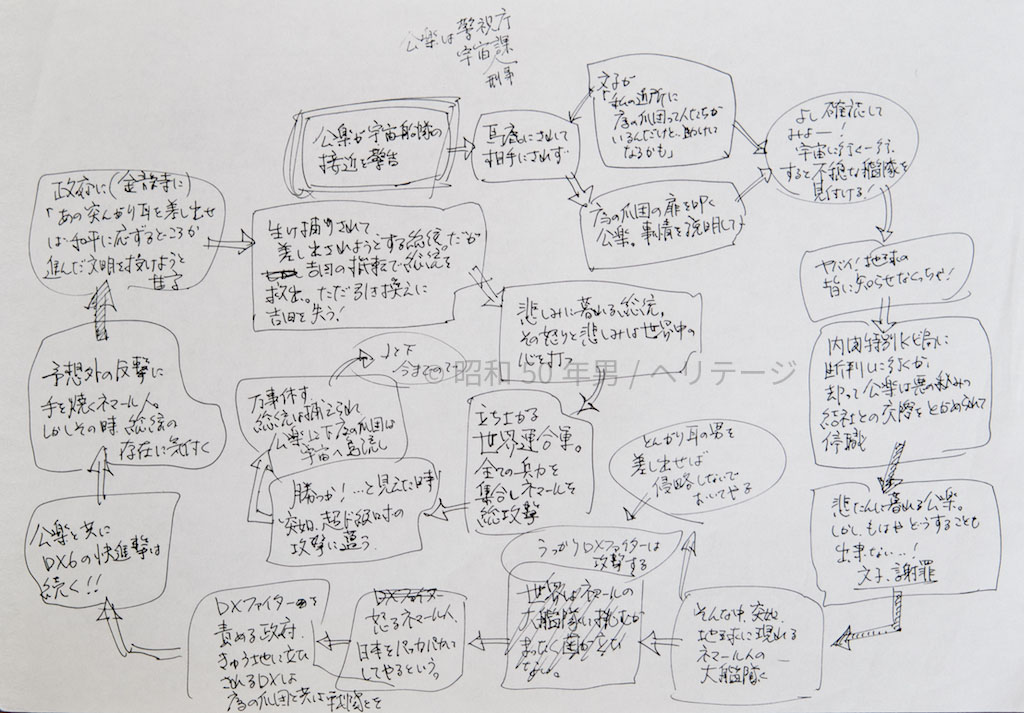 公楽は警視庁
宇宙課
刑事
公楽が宇宙船隊の
接近を警告
耳濡にされて
相手にされず
文子が
「私の近所に
鷹の爪団って人たちが
いるんだけど、助けに
なるかも」
鷹の爪団の扉を叩く
公楽。事情を説明して
よし確認して
みよー!
宇宙に行く一行、
すると不穏な艦隊を
見付ける!
ヤバイ!地球の
皆に知らせなくっちゃ!
内閣特別
断判しに行くが
却って公楽は悪の
結社との交際をとがめられて
停職
悲たんに暮れる公楽。
しかし、もはやどうすることも
出来ない…!
文子、謝罪
そんな中、突如
地球に現れる
ネマール人の
大艦隊
とんがり耳の男を
差し出せば
侵略しないで
おいてやる
うっかりDXファイターは
攻撃する
世界はネマールの
大艦隊に挑むが
まったく歯が立た
ない。
DXファイター
怒るネマール人、
日本を
してやるという。
DXファイターを
責める政府、
きゅう地に立た
されるDXは
鷹の爪団と共に
公楽と共に
DX6の快進撃は
続く!!
予想外の反撃に
手を焼くネマール人。
しかしその時、総統の
存在に気付く
政府に
「あの突んがり耳を差し出せ
ば和平に応ずるどころか
進んだ文明を授けようと
甘言
生け捕りされて
差し出されようとする総統。だが
吉田の機転で総統を
救出。ただ引き換えに
吉田を失う!
悲しみに暮れる総統。
その怒りと悲しみは世界中の
心を打つ
立ち上がる
世界連合軍。
全ての兵力を
集合しネマールを
総攻撃
勝つか!…と見えた時
突如、超ド級の
攻撃に遭う
万事休す
総統は捕えられて
公楽以下鷹の爪団は
宇宙へ島流し
以下
今までの
© 昭和 50 年男 / ヘリテージ